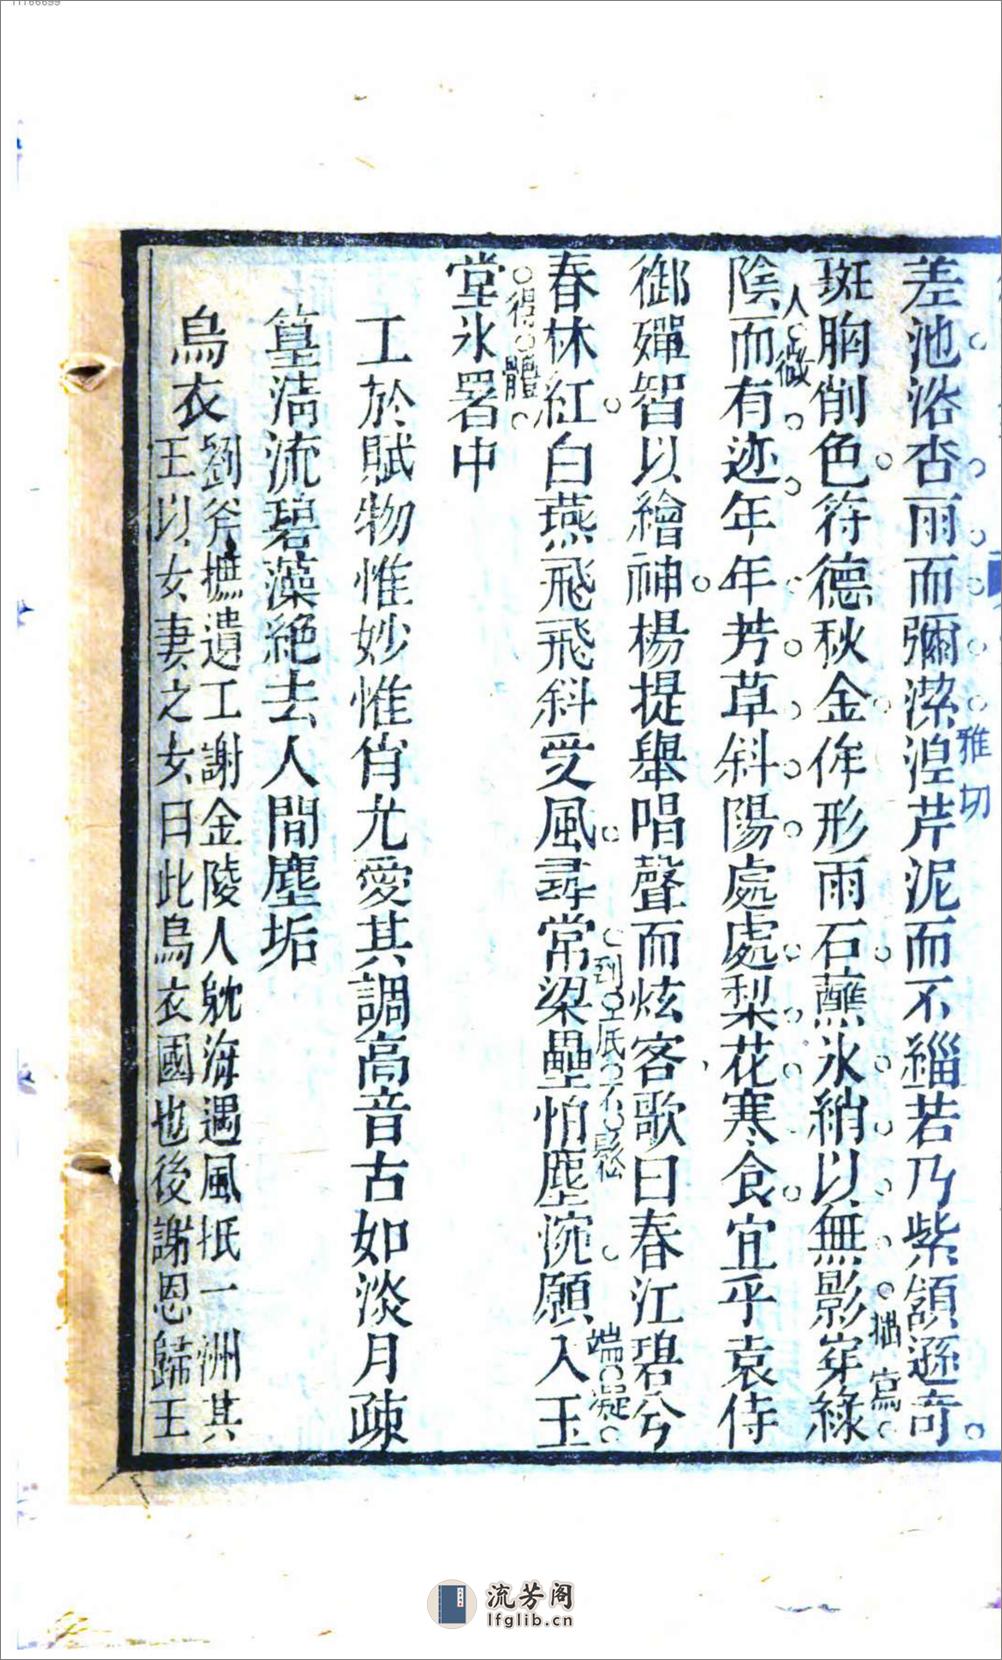 差池浴杏雨而彌潔湟芹泥而不緇若乃紫頷遜奇
雅切
斑胸削色符德秋金侔形雨石蘸氷納以無影穿綠
描寫
陰而有迹年年芳草斜陽處處梨花寒食宜乎袁侍
人微
御嬋智以繪神楊提舉唱聲而炫客歌曰春江碧兮
春林紅白燕飛飛斜受風尋常梁壘怕塵涴願入玉
到底不懸
端凝
堂氷署中
得體
工於賦物惟妙惟肖尤愛其調高音古如淡月疎
篁清流碧藻絶去人間塵垢
烏衣
劉斧摭遺王謝金陵人航海遇風抵一洲其
王以女妻之女曰此烏衣國也後謝恩歸王
流芳阁
lfglib.cn